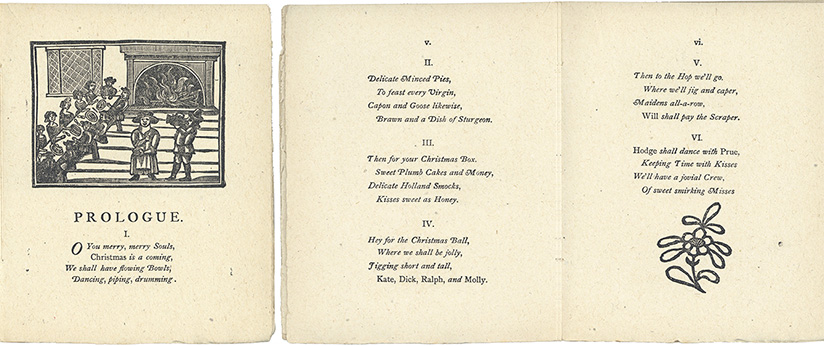 PROLOGUE.
I.
O You merry, merry Souls,
Christmas is a coming,
We shall have flowing Bowls,
Dancing, piping, drumming.
v.
II.
Delicate Minced Pies,
To feast every Virgin,
Capon and Goose likewise,
Brawn and a Dish of Sturgeon.
III.
Then for your Christmas Box.
Sweet Plumb Cakes and Money,
Delicate Holland Smocks,
Kisses sweet as Honey.
IV.
Hey for the Christmas Ball,
Where we shall be jolly,
Jigging short and tall,
Kate, Dick, Ralph, and Molly.
vi.
V.
Then to the Hop we'll go.
Where we'll jig and caper,
Maidens all-a-row,
Will shall pay the Scraper.
VI.
Hodge shall dance with Prue,
Keeping Time with Kisses
We'll have a jovial Crew,
Of sweet smirking Misses